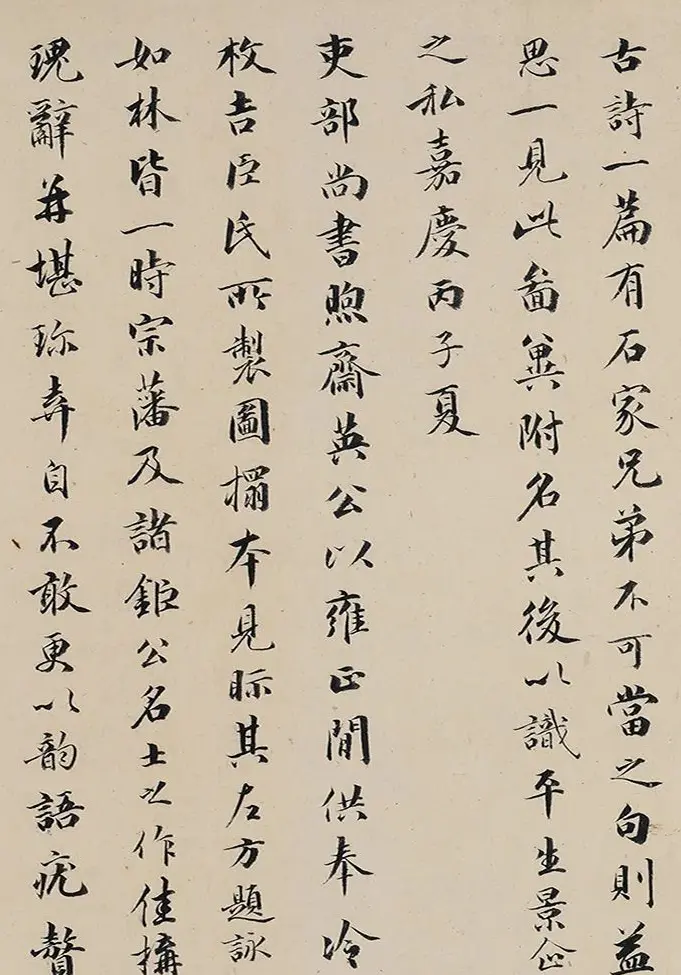 古詩一篇有石家兄弟不可當之句則益
思一見此啚冀附名其後以識平生景企
之私嘉慶丙子夏
吏部尚書煦齋英公以雍正間供奉冷
枚吉臣氏所製圖搨本見眎其左方題詠
如林皆一時宗藩及諸鉅公名士之作佳搆
瑰辭并堪珎弆自不敢更以韵語疣贅